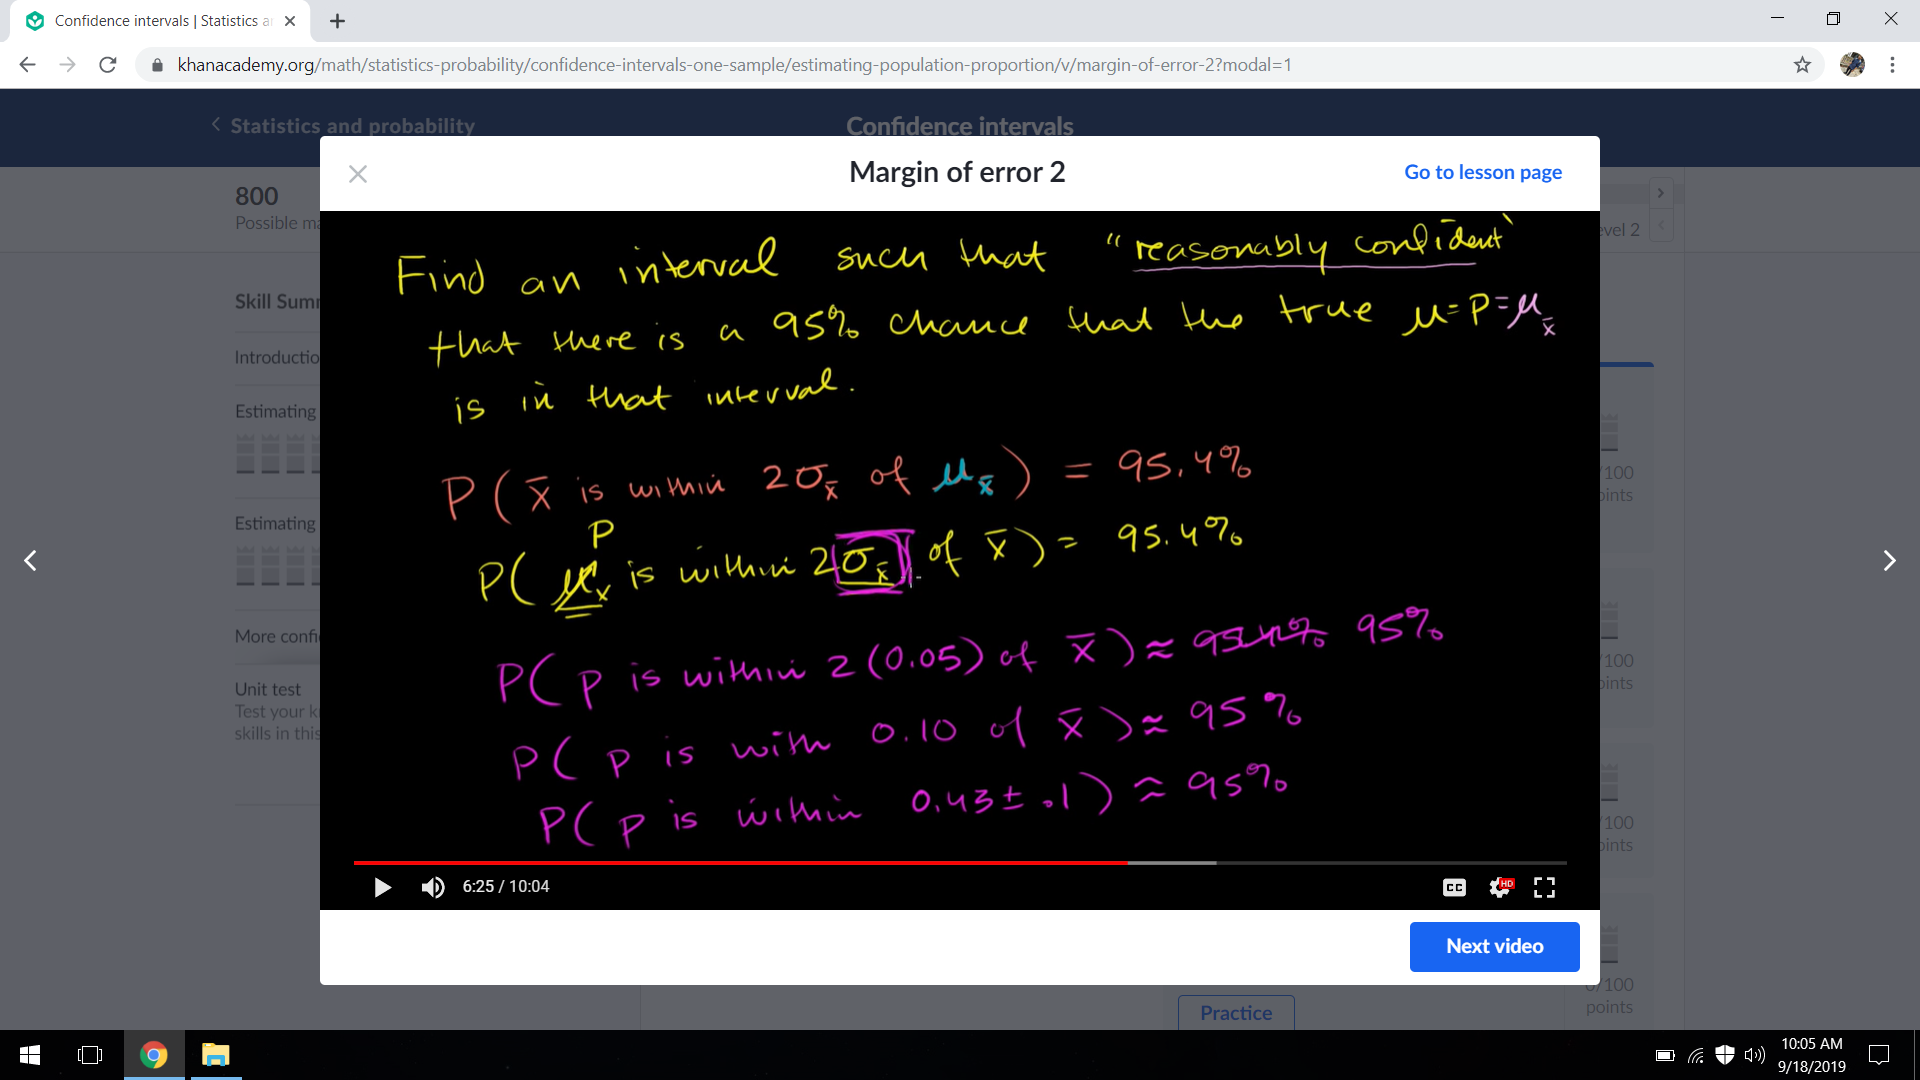 Confidence intervals | Statistics a
khanacademy.org/math/statistics-probability/confidence-intervals-one-sample/estimating-population-proportion/v/margin-of-error-2?modal=1
Statistics and probability
Confidence intervals
Margin of error 2
Go to lesson page
800
Possible ma
evel 2
Skill Summ
Introductio
Estimating
Estimating
More confi
Unit test
Test your k
skills in this
Find an interval such that "reasonably confident"
that there is a 95% chance that the true μ=P=μx̄
is in that interval.
P(x̄ is within 2σx̄ of μx̄) = 95.4%
P
P(μx̄ is within 2σx̄ of x̄) = 95.4%
P(p is within 2(0.05) of x̄) ≈ 95.4% 95%
P(p is with 0.10 of x̄) ≈ 95%
P(p is within 0.43 ± .1) ≈ 95%
6:25 / 10:04
CC
HD
Next video
/100
oints
/100
oints
/100
oints
0/100
points
Practice
10:05 AM
9/18/2019